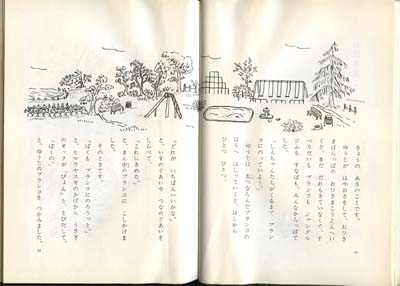 きょうの あさのことです。
ゆうじが はやおきをして、おひさ
まはらっぱの おひさまこうえんへい
くと、まだ だれもきていなくて、す
べりだいも ブランコも ジャングル
ジムも すなばも、みんなからっぽで
した。
「しんちゃんたちがくるまで ブラン
コにのっていよう。」
ゆうじは 五つならんだブランコの
ほうへ はしっていくと、はしから
ひとつ ひとつ、
「どれが いちばんいいかな。」
と、いすのぐあいや つなのぐあいを
しらべて、
「これにきめた。」
と、まん中のブランコに こしかけま
した。
そのときです。
「ぼくも ブランコにのろうっと。」
と、ヒマラヤスギのかげから うさぎ
のギックが「ぴょん」と、とびだして、
「ぼくの。」
と、ゆうじのブランコを つかみました。